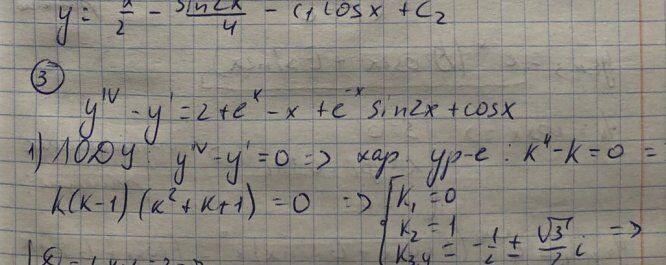 y = x/2 - sin2x/4 - C1 cosx + C2
③
y^IV - y' = 2 + e^x - x + e^-x sin2x + cosx
1) ЛОДУ: y^IV - y' = 0 => хар. ур-е: k^4 - k = 0 =
k(k-1)(k^2+k+1) = 0 => [ k1 = 0
k2 = 1
k3,4 = -1/2 ± √3/2 i =>